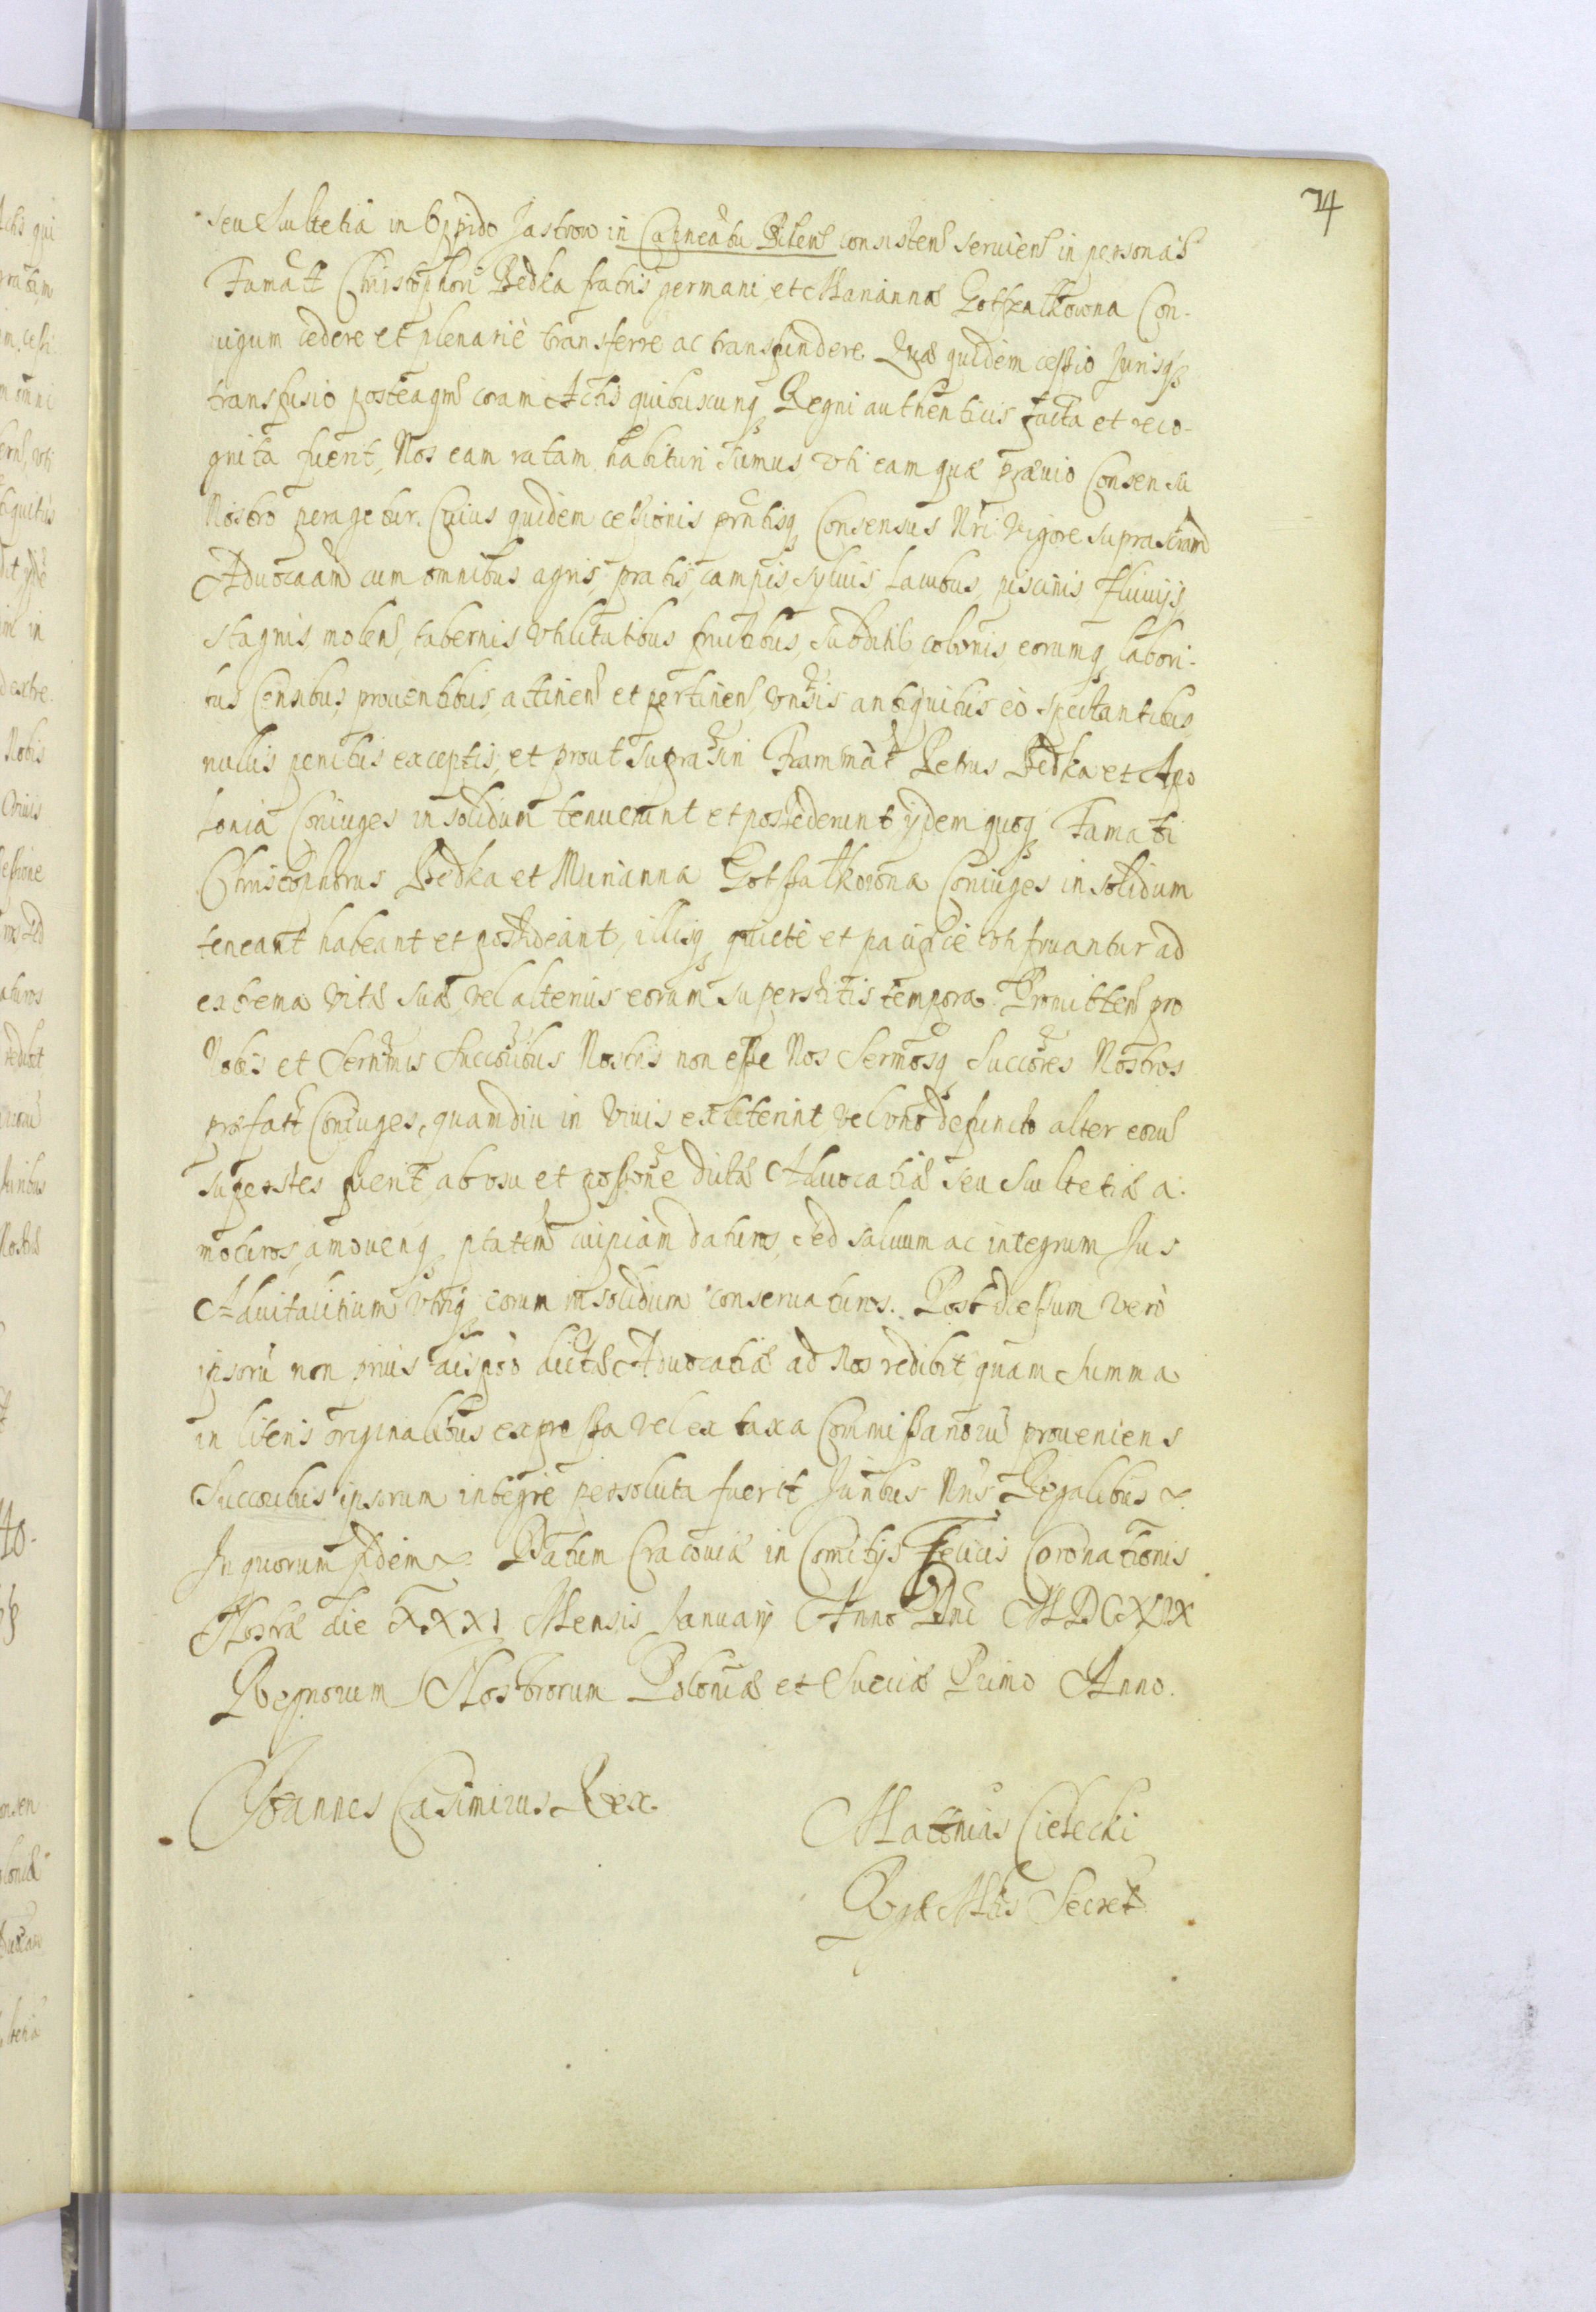 74
seu Scultetia in Oppido Jastrow in Capneatu Vcten consisten servien in personas
Famatt Christophori Bedka fratris germani, et Mariannæ Gotszalkowna Con-
iugum cedere et plenariè transferre ac transfundere. Quæ quidem cessio Jurisq
transfusio posteaqm coram Actis quibuscunq Regni authenticis facta et reco-
gnita fuerit, Nos eam ratam habituri sumus vti eam quæ præuio Consensu
Nostro peragetur. Cuius quidem cessionis prntisq Consensus Nri vigore suprascram
Aduocaam cum omnibus agris, pratis, campis, syluis, Lacubus, piscinis, Fluuijs,
stagnis, molen, tabernis vtilitatibus fructibus, subditis colonis, eorumq labori-
bus Censibus, prouentibus, attinen et pertinen, vnsis antiquitus eò spectantibus,
nullis penitus exceptis, et prout suprasn Fammat Petrus Bedka et Apo
lonia Coniuges in solidum tenuerunt et possederunt ijdem quoq Famati
Christophorus Bedka et Marianna Gotszalkowna Coniuges in solidum
teneant habeant et possideant, illisq quietè et pacificè vti fruantur ad
extrema vitæ suæ, vel alterius eorum superstitis tempora. Promitten pro
Nobis et Sernmis Succoribus Nostris non esse Nos Sermosq Succores Nostros
præfatt Coniuges, quamdiu in viuis extiterint, vel vno defuncto alter eoru
superstes fuerit, ab vsu et possone dictæ Aduocatiæ seu Scultetiæ a-
moturos, amouenq ptatem cuipiam daturos, sed saluum ac integrum Jus
Aduitalitium vtriq eorum in solidum conseruaturos. Post decessum verò
ipsoru non prius dispoo dictæ Aduocatiæ ad Nos redibit, quam summa
in literis originalibus expressa vel ex taxa Commissarioru proueniens
Succoribus ipsorum integrè persoluta fuerit Juribus Nris Regalibus
In quorum fidem Datum Cracouiæ in Comitijs Felicis Coronationis
Nostræ die XXXI Mensis January Anno Dni MDCXLIX
Regnorum Nostrorum Poloniæ et Sueciæ Primo Anno.
Joannes Casimirus Rex.
Matthias Cielecki
Rgæ Mtis Secret